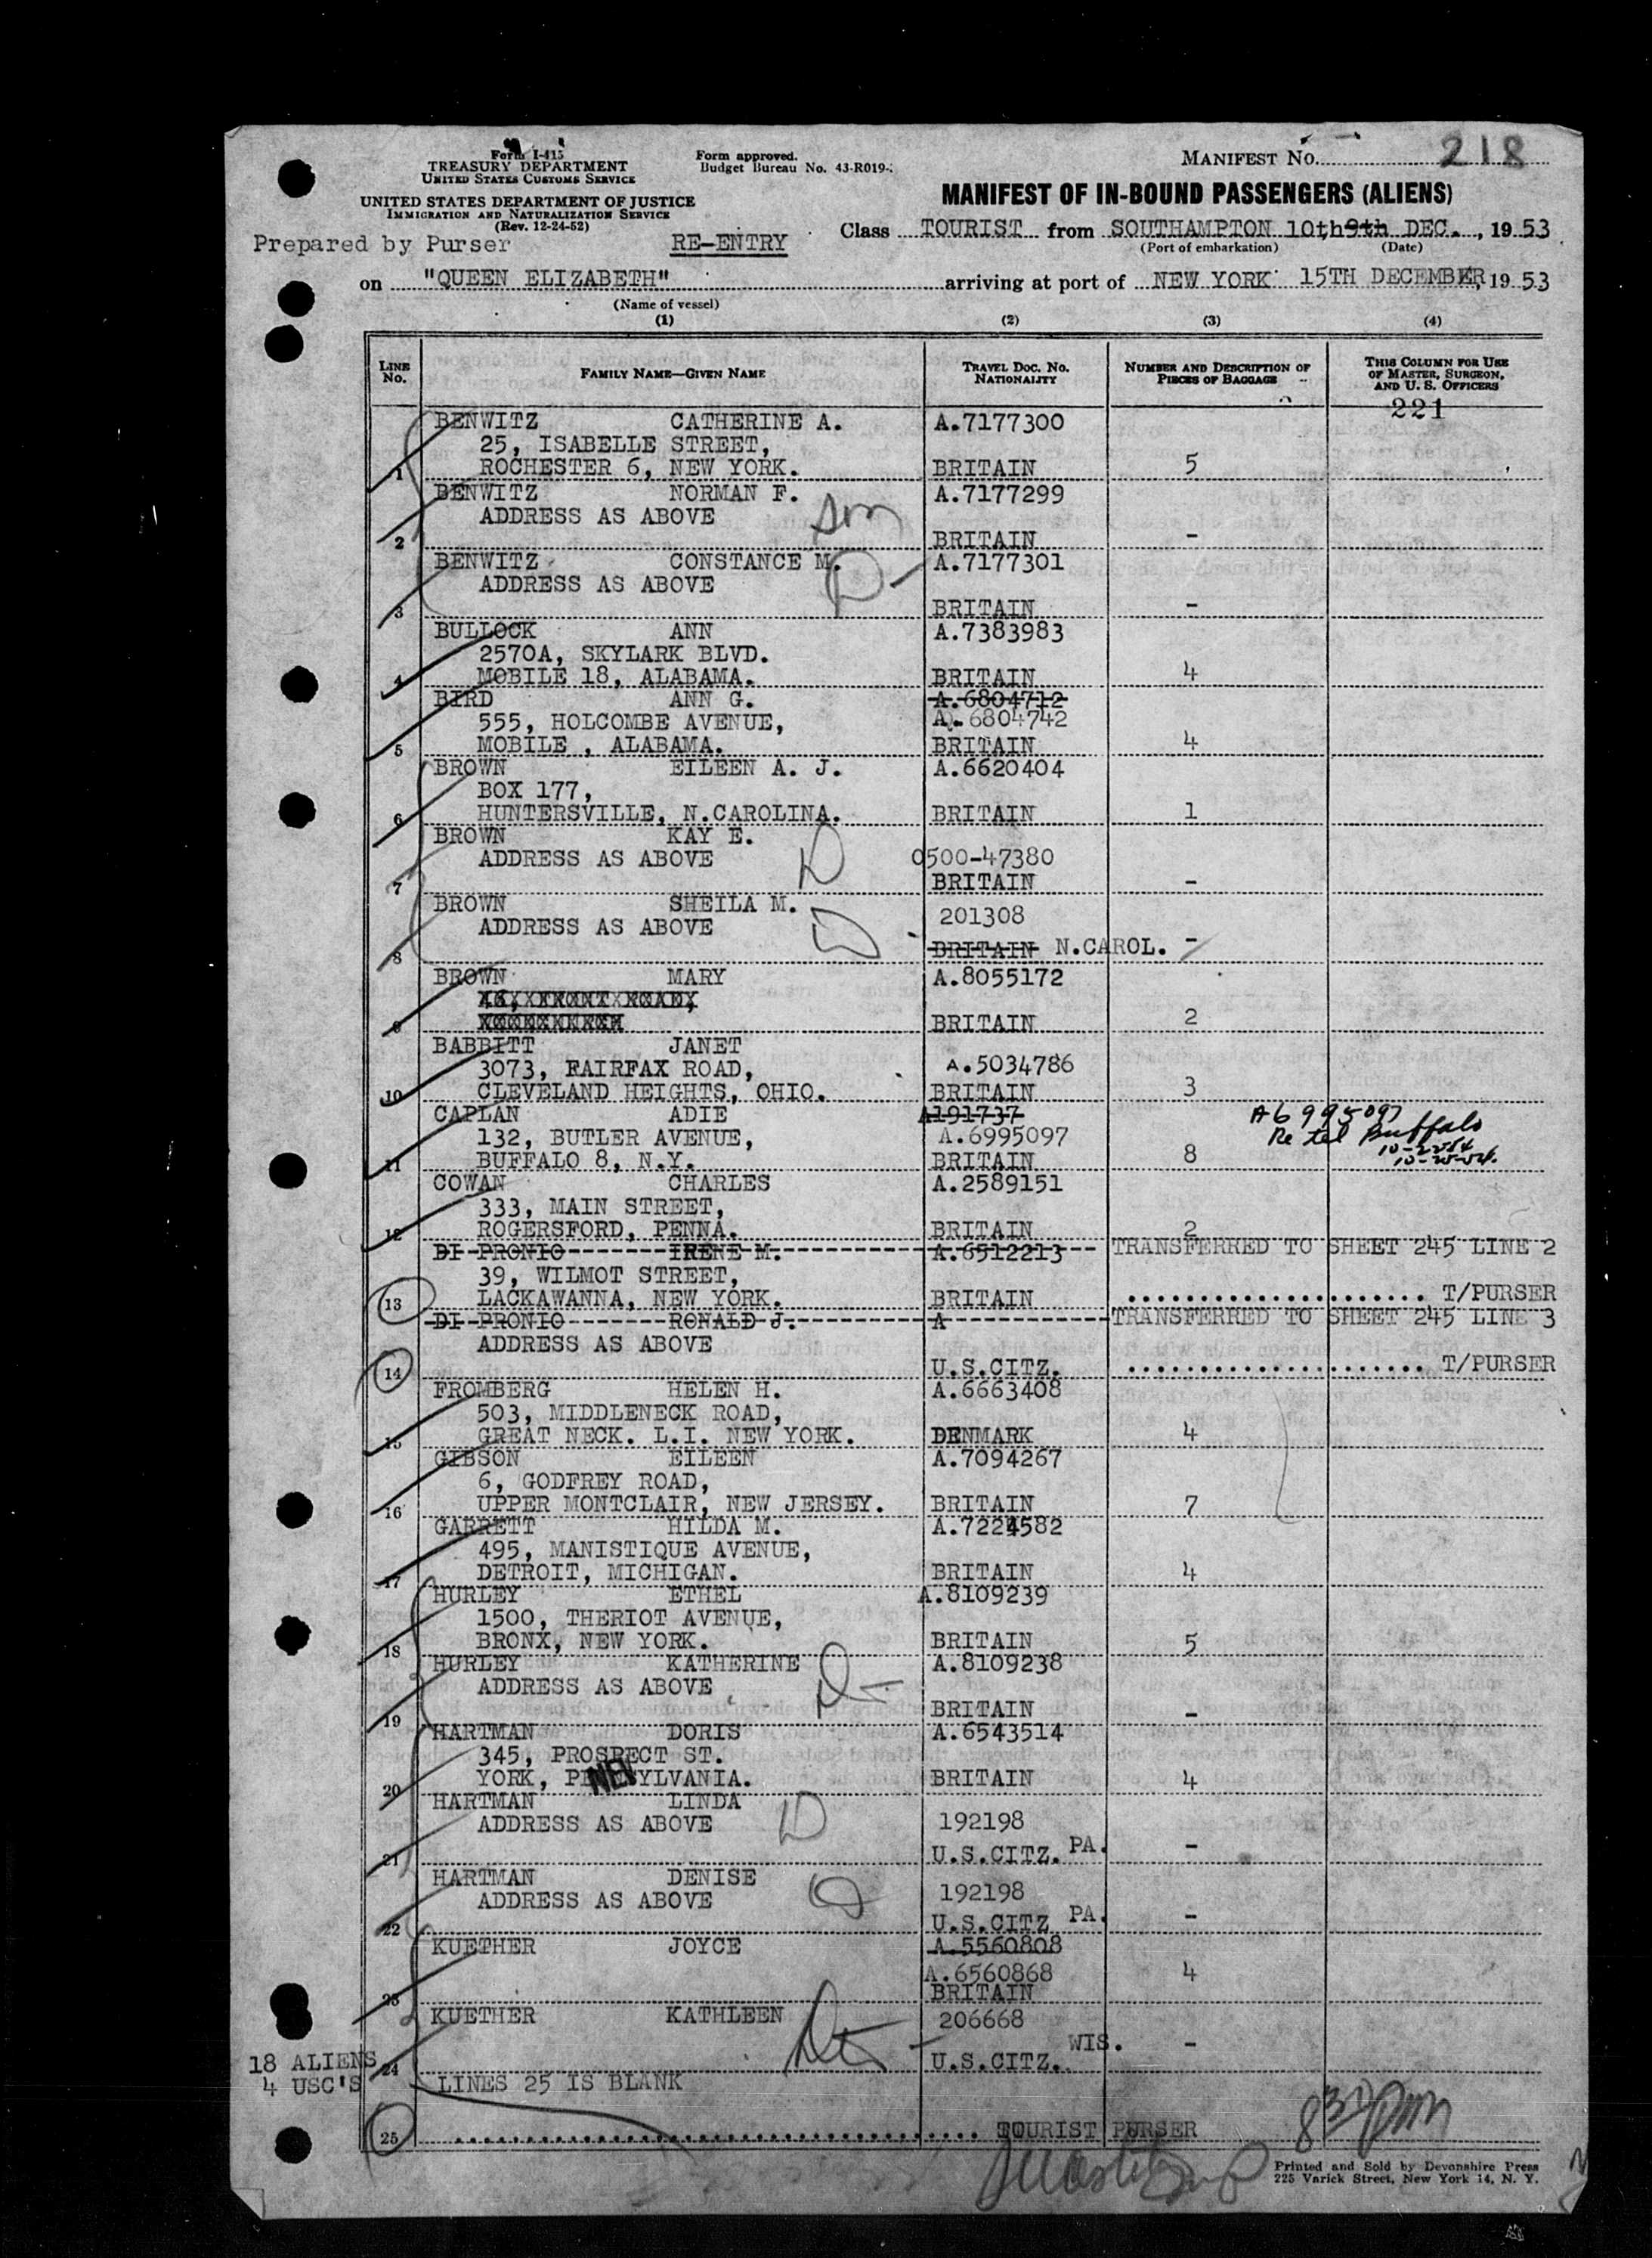 Form I-415
TREASURY DEPARTMENT
UNITED STATES CUSTOMS SERVICE
UNITED STATES DEPARTMENT OF JUSTICE
IMMIGRATION AND NATURALIZATION SERVICE
(Rev. 12-24-52)
Form approved.
Budget Bureau No. 43-R019-
MANIFEST NO. 218
MANIFEST OF IN-BOUND PASSENGERS (ALIENS)
Prepared by Purser RE-ENTRY
Class TOURIST from SOUTHAMPTON 10th 9th DEC., 1953
(Port of embarkation) (Date)
on "QUEEN ELIZABETH" arriving at port of NEW YORK 15TH DECEMBER, 1953
(Name of vessel)
(1) (2) (3) (4)
LINE No. FAMILY NAME—GIVEN NAME TRAVEL DOC. NO. NATIONALITY NUMBER AND DESCRIPTION OF PIECES OF BAGGAGE THIS COLUMN FOR USE OF MASTER, SURGEON, AND U. S. OFFICERS
221
BENWITZ CATHERINE A. A.7177300
25, ISABELLE STREET,
1 ROCHESTER 6, NEW YORK. BRITAIN 5
BENWITZ NORMAN F. A.7177299
ADDRESS AS ABOVE son
2 BRITAIN -
BENWITZ CONSTANCE M. A.7177301
ADDRESS AS ABOVE D
3 BRITAIN -
BULLOCK ANN A.7383983
2570A, SKYLARK BLVD.
4 MOBILE 18, ALABAMA. BRITAIN 4
BIRD ANN G. A.6804712
555, HOLCOMBE AVENUE, A.6804742
5 MOBILE , ALABAMA. BRITAIN 4
BROWN EILEEN A. J. A.6620404
BOX 177,
6 HUNTERSVILLE, N.CAROLINA. BRITAIN 1
BROWN KAY E.
ADDRESS AS ABOVE D 0500-47380
7 BRITAIN -
BROWN SHEILA M. 201308
ADDRESS AS ABOVE D
8 BRITAIN N.CAROL. -
BROWN MARY A.8055172
9 BRITAIN 2
BABBITT JANET
3073, FAIRFAX ROAD, A.5034786
10 CLEVELAND HEIGHTS, OHIO. BRITAIN 3
CAPLAN ADIE A191737 A6995097
132, BUTLER AVENUE, A.6995097 Re tel Buffalo
11 BUFFALO 8, N.Y. BRITAIN 8
10-25-54.
COWAN CHARLES A.2589151
333, MAIN STREET,
12 ROGERSFORD, PENNA. BRITAIN 2
DI PRONIO IRENE M. A.6512213 TRANSFERRED TO SHEET 245 LINE 2
39, WILMOT STREET,
13 LACKAWANNA, NEW YORK. BRITAIN ..................... T/PURSER
DI PRONIO RONALD J. A TRANSFERRED TO SHEET 245 LINE 3
ADDRESS AS ABOVE
14 U.S.CITZ. ..................... T/PURSER
FROMBERG HELEN H. A.6663408
503, MIDDLENECK ROAD,
15 GREAT NECK. L.I. NEW YORK. DENMARK 4
GIBSON EILEEN A.7094267
6, GODFREY ROAD,
16 UPPER MONTCLAIR, NEW JERSEY. BRITAIN 7
GARRETT HILDA M.
495, MANISTIQUE AVENUE,
17 DETROIT, MICHIGAN. BRITAIN 4
HURLEY ETHEL A.8109239
1500, THERIOT AVENUE,
18 BRONX, NEW YORK. BRITAIN 5
HURLEY KATHERINE A.8109238
ADDRESS AS ABOVE D
19 BRITAIN -
HARTMAN DORIS A.6543514
345, PROSPECT ST.
20 YORK, PENNSYLVANIA. BRITAIN 4
HARTMAN LINDA
ADDRESS AS ABOVE D 192198
21 U.S.CITZ. PA. -
HARTMAN DENISE
ADDRESS AS ABOVE D 192198
22 U.S.CITZ PA. -
KUETHER JOYCE A.5560808
A.6560868 4
23 BRITAIN
KUETHER KATHLEEN 206668
WIS. -
24 U.S.CITZ.
18 ALIENS
4 USC'S
LINES 25 IS BLANK
25 TOURIST PURSER
830pm
Printed and Sold by Devonshire Press
225 Varick Street, New York 14, N. Y.